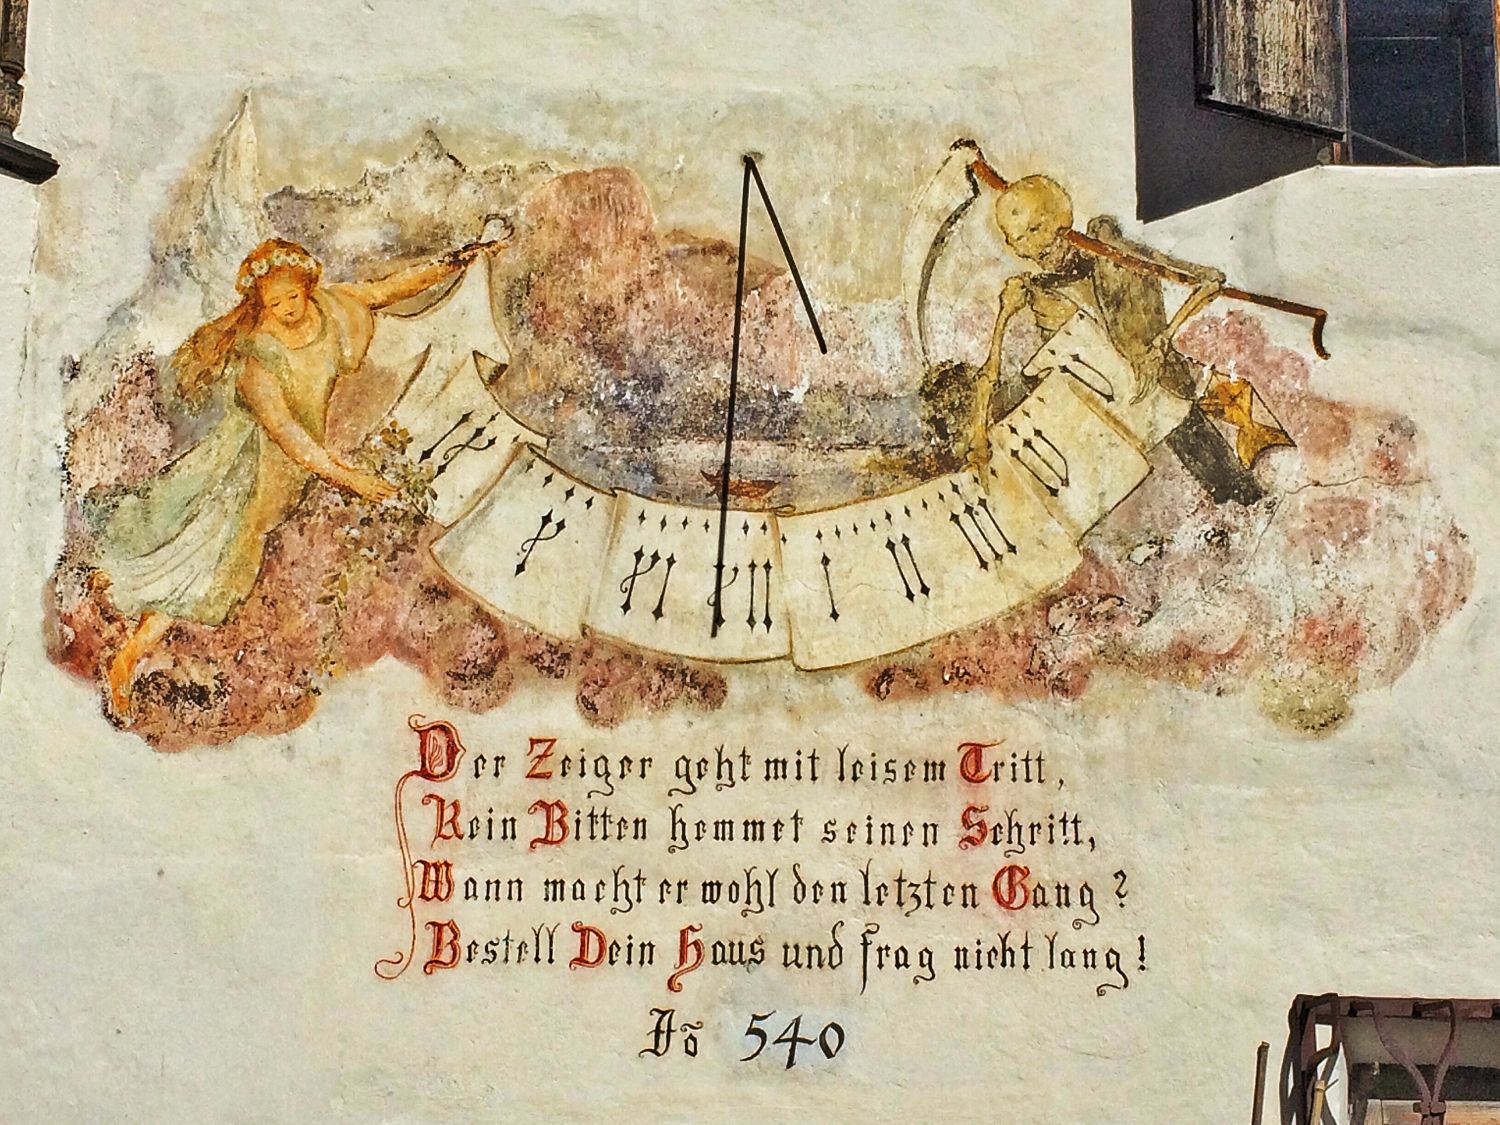 IX X XI XII I II III IV V
Der Zeiger geht mit leisem Tritt,
Kein Bitten hemmet seinen Schritt,
Wann macht er wohl den letzten Gang ?
Bestell Dein Haus und frag nicht lang !
Jō 540